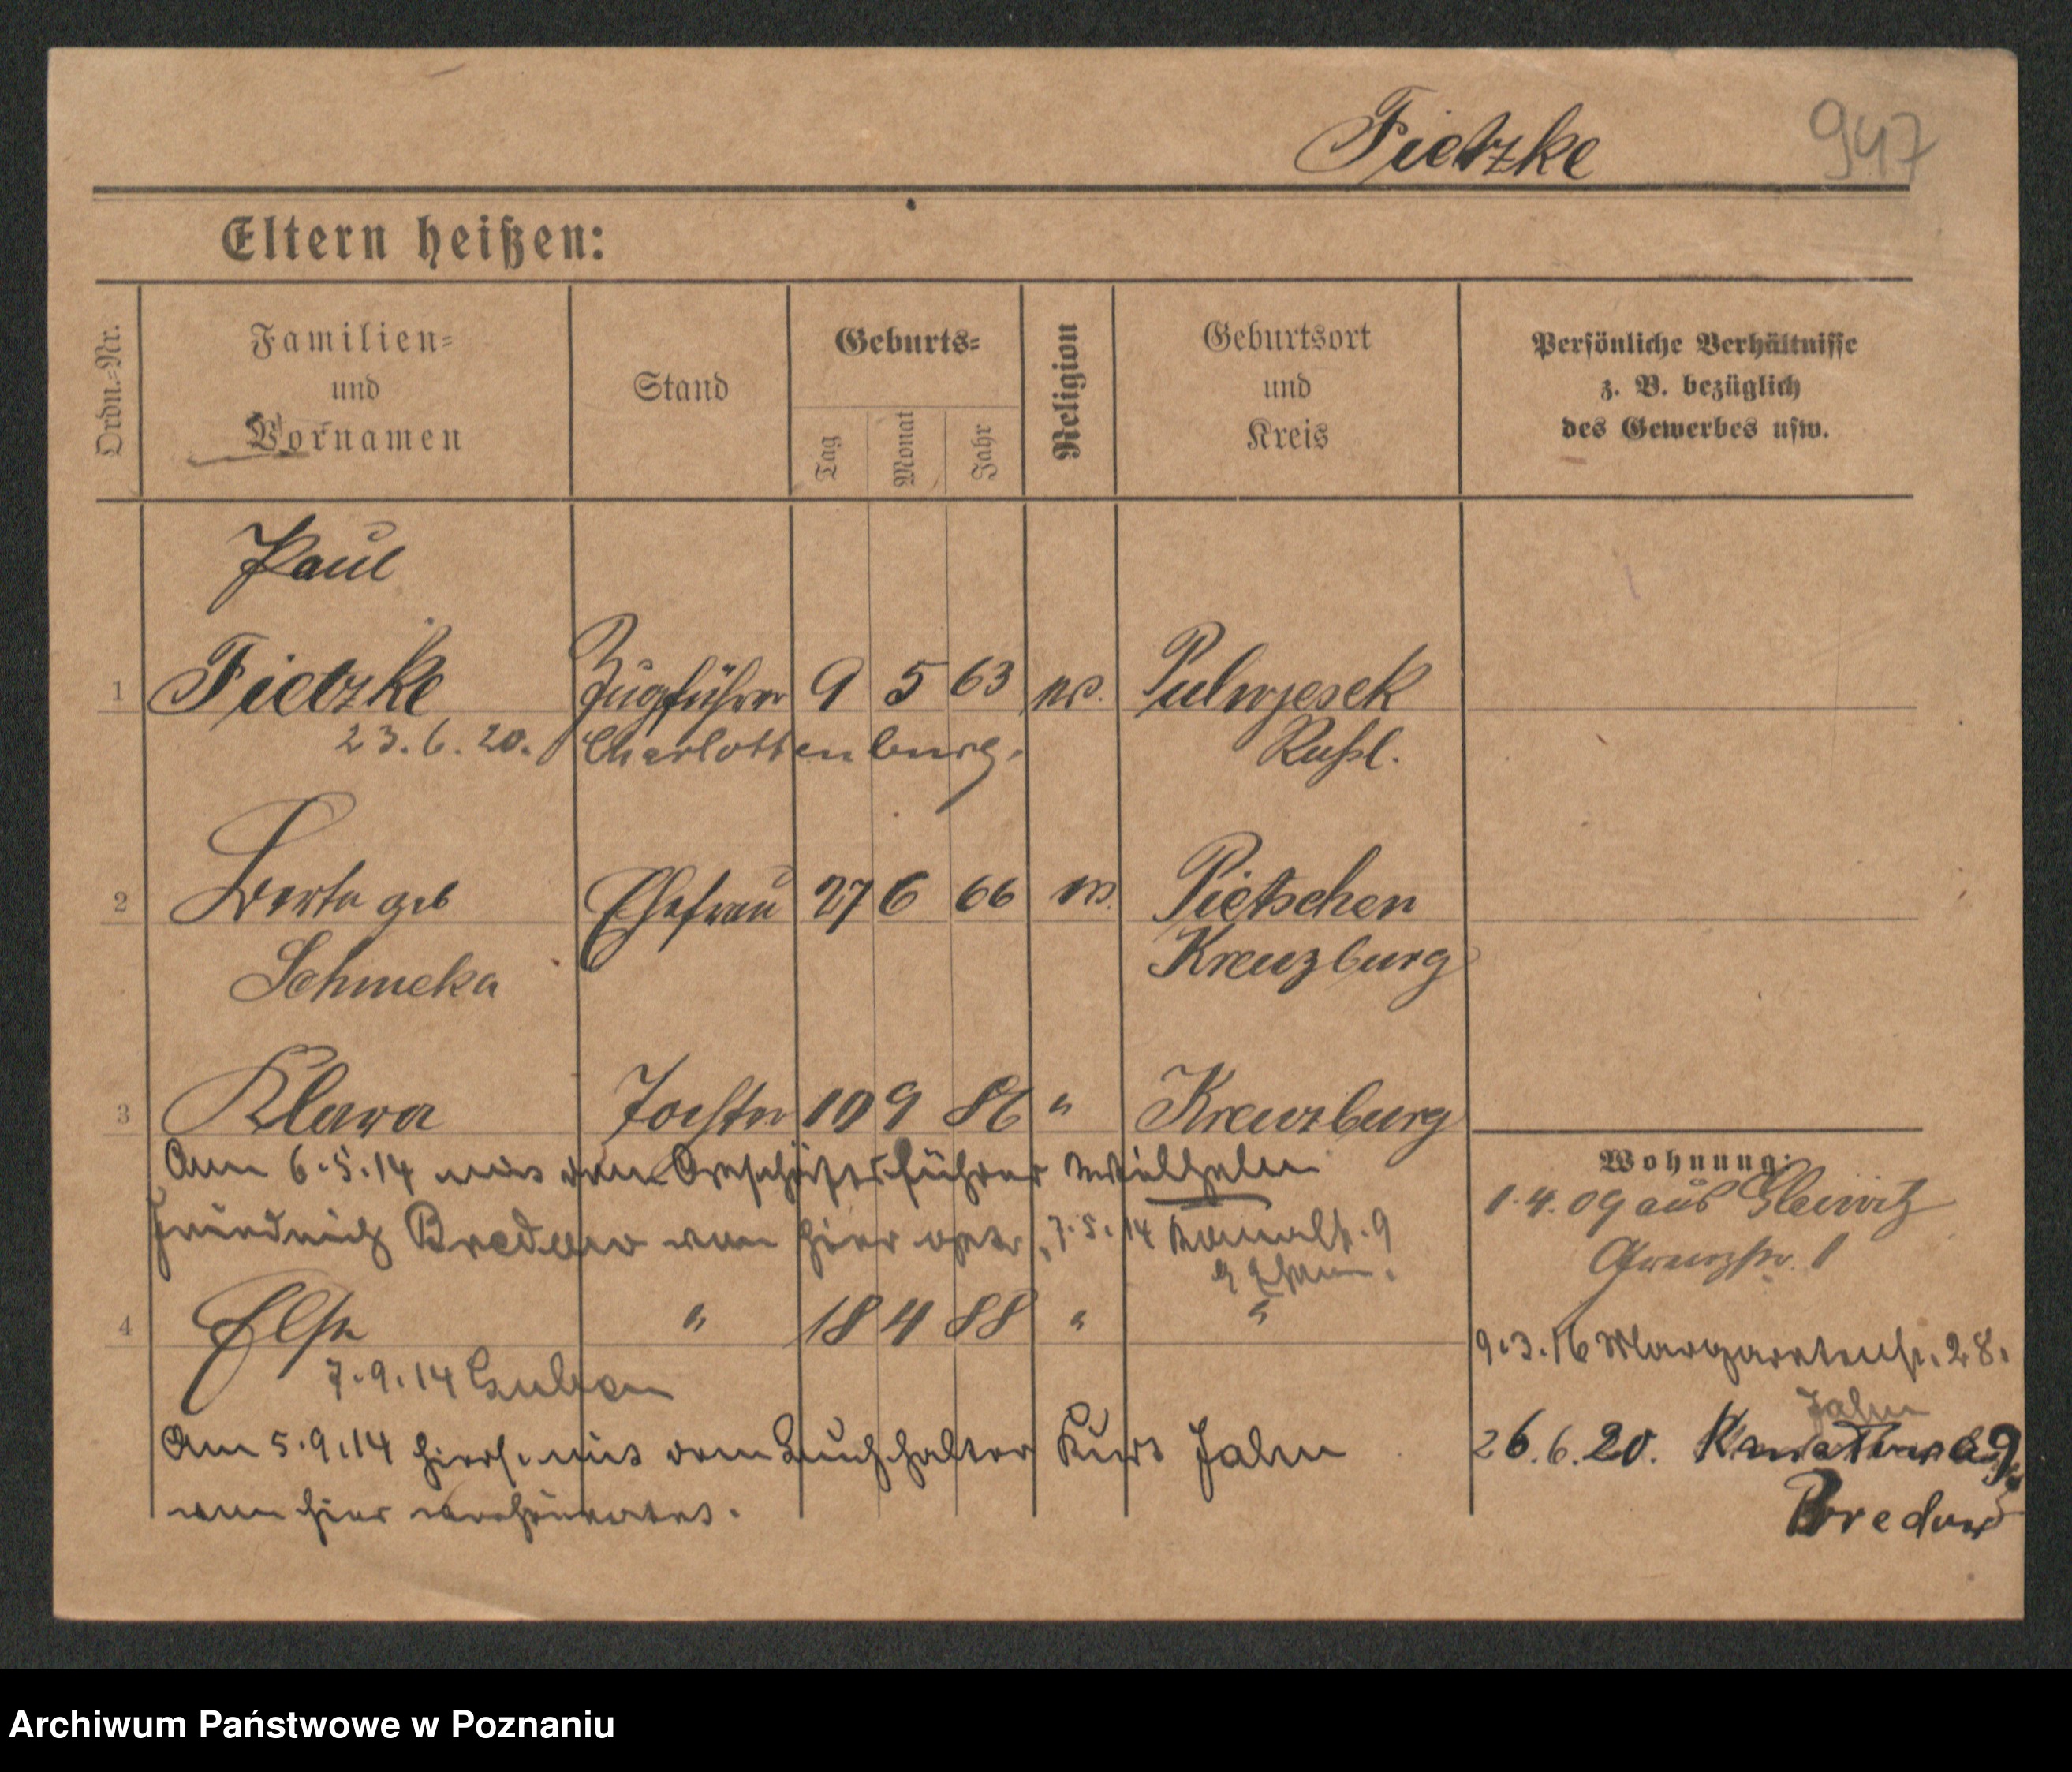 Fietzke 947
Eltern heißen:
Ordn.=Nr.
Familien=
und
Vornamen
Stand
Geburts=
Tag
Monat
Jahr
Religion
Geburtsort
und
Kreis
Persönliche Verhältnisse
z. B. bezüglich
des Gewerbes usw.
Paul
1 Fietzke Zugführer 9 5 63 ev. Pulwjesek
23.6.20. Charlottenburg. Rußl.
2 Berta geb Ehefrau 27 6 66 ev. Pietschen
Schmeka Kreuzburg
3 Klara Tochter 10 9 86 " Kreuzburg
Am 6.5.14 mit dem Geschäftsführer Wilhelm
Friedrich Bredow von hier getr. 7.5.14 9
4 Else " 18 4 88 " "
7.9.14 Guben
Am 5.9.14 hiers. mit dem Buchhalter Kurt Jahn
von hier verheiratet.
Wohnung:
1.4.09 aus Gleiwitz
Grenzstr. 1
9.3.16 Margaretenstr. 28.
Jahn
26.6.20.
Bredow
Archiwum Państwowe w Poznaniu